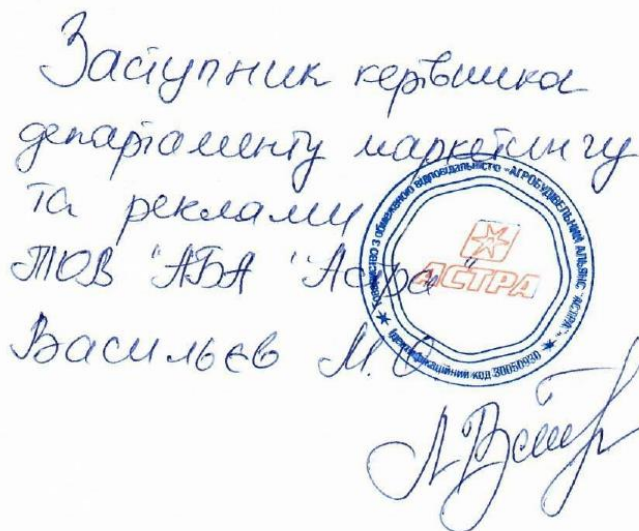 Заступник керівника
департаменту маркетингу
та реклами
ТОВ "АБА "Астра"
Васильєв М.О.
Товариство з обмеженою відповідальністю "АГРОБУДІВЕЛЬНИЙ АЛЬЯНС "АСТРА"
АСТРА
Ідентифікаційний код 30050930